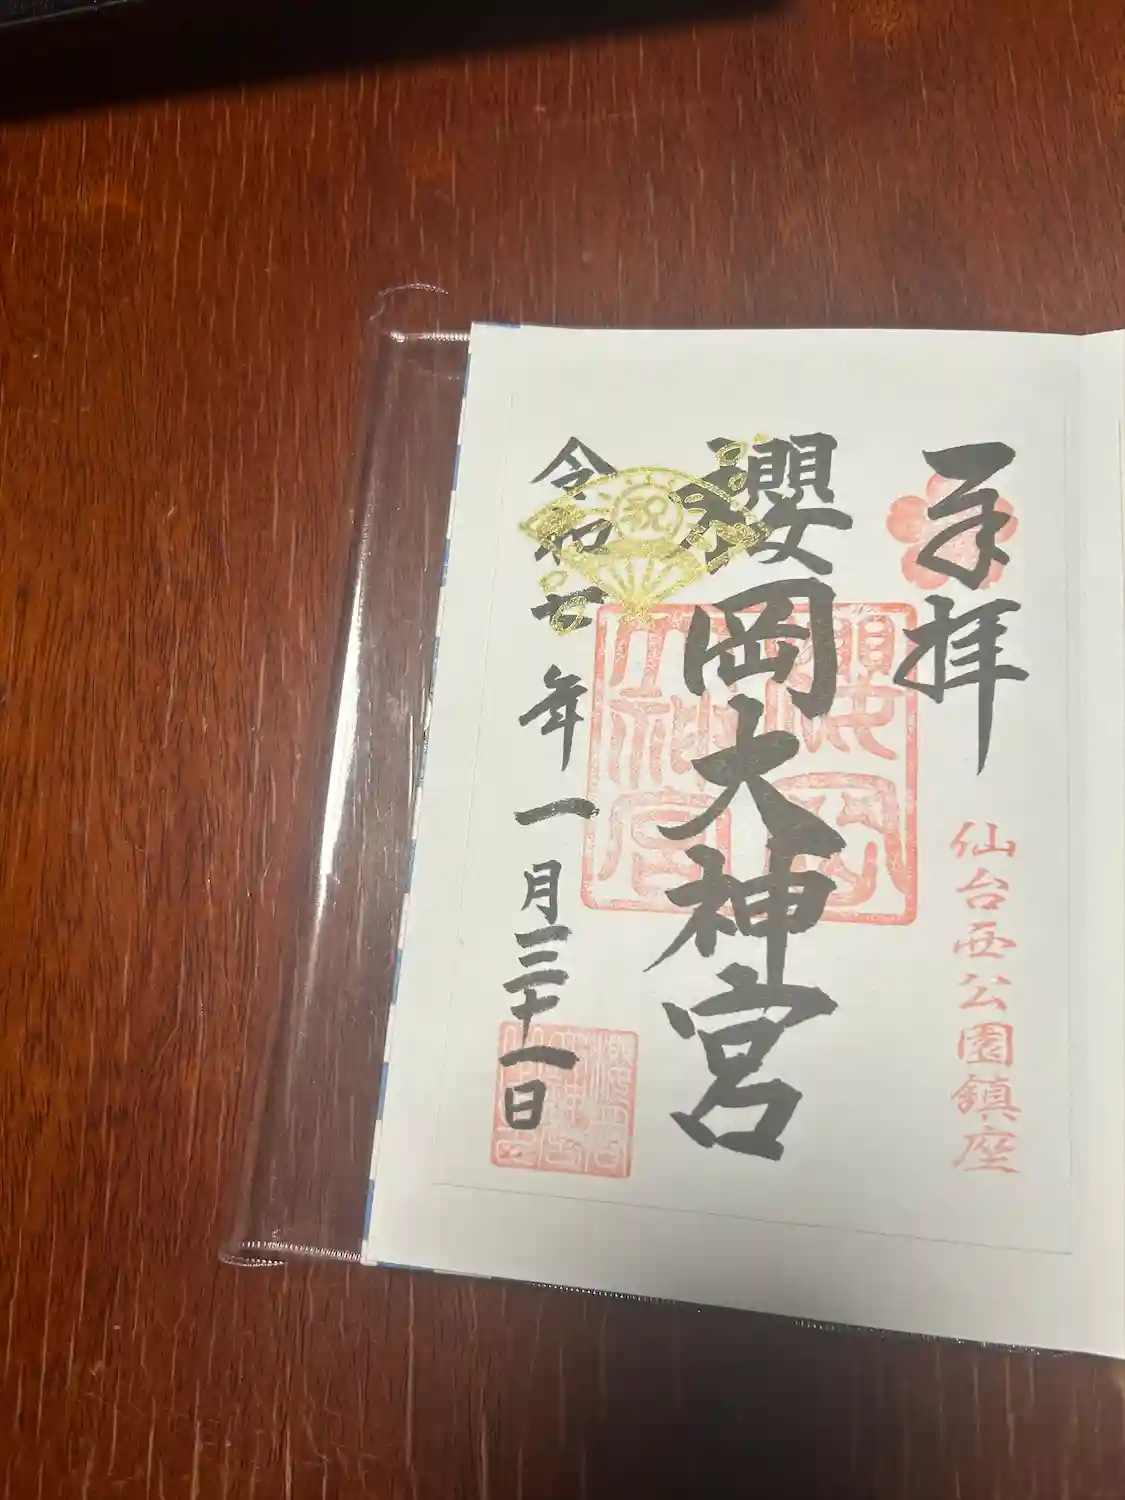 奉拝
仙台西公園鎮座
櫻岡大神宮
櫻岡大神宮
祝
令和七年一月三十一日